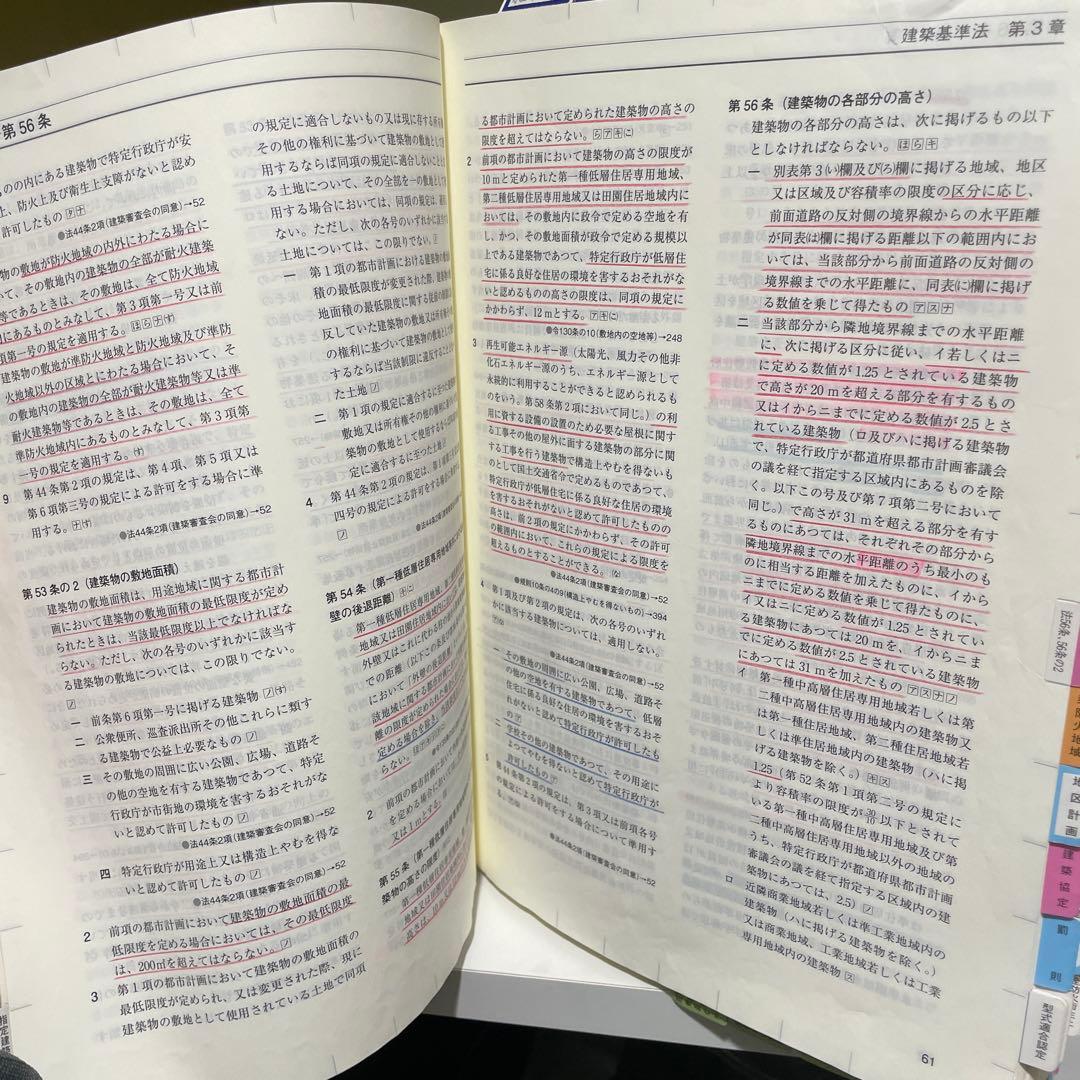 第56条
ものの内にある建築物で特定行政庁が安
上、防火上及び衛生上支障がないと認め
許可したもの
●法44条2項(建築審査会の同意)→52
物の敷地が防火地域の内外にわたる場合に
いて、その敷地内の建築物の全部が耐火建築
等であるときは、その敷地は、全て防火地域
にあるものとみなして、第3項第一号又は前
項第一号の規定を適用する。
建築物の敷地が準防火地域と防火地域及び準防
火地域以外の区域とにわたる場合において、そ
の敷地内の建築物の全部が耐火建築物等又は準
耐火建築物等であるときは、その敷地は、全て
準防火地域内にあるものとみなして、第3項第
一号の規定を適用する。
9 第44条第2項の規定は、第4項、第5項又は
第6項第三号の規定による許可をする場合に準
用する。
●法44条2項(建築審査会の同意)→52
第53条の2(建築物の敷地面積)
建築物の敷地面積は、用途地域に関する都市計
画において建築物の敷地面積の最低限度が定め
られたときは、当該最低限度以上でなければな
らない。ただし、次の各号のいずれかに該当す
る建築物の敷地については、この限りでない。
一 前条第6項第一号に掲げる建築物
二 公衆便所、巡査派出所その他これらに類す
る建築物で公益上必要なもの
三 その敷地の周囲に広い公園、広場、道路そ
の他の空地を有する建築物であつて、特定
行政庁が市街地の環境を害するおそれがな
いと認めて許可したもの
●法44条2項(建築審査会の同意)→52
四 特定行政庁が用途上又は構造上やむを得な
いと認めて許可したもの
●法44条2項(建築審査会の同意)→52
2 前項の都市計画において建築物の敷地面積の最
低限度を定める場合においては、その最低限度
は、200㎡を超えてはならない。
3 第1項の都市計画において建築物の敷地面積の
最低限度が定められ、又は変更された際、現に
建築物の敷地として使用されている土地で同項
の規定に適合しないもの又は現に存する所有
その他の権利に基づいて建築物の敷地として使
用するならば同項の規定に適合しないこととな
る土地について、その全部を一の敷地として
用する場合においては、同項の規定は、適用し
ない。ただし、次の各号のいずれかに該当する
土地については、この限りでない。
一 第1項の都市計画における建築物の敷地
積の最低限度が変更された際、建築物の
地面積の最低限度に関する従前の制限に
反していた建築物の敷地又は所有権その他
の権利に基づいて建築物の敷地として
するならば当該制限に違反することと
た土地
二 第1項の規定に適合するに至つた建築物の
敷地又は所有権その他の権利に基づいて
築物の敷地として使用するならば同項の
定に適合するに至つた土地
4 第44条第2項の規定は、第1項第三号又は
四号の規定による許可をする場合に
●法44条2項(建築審査会
第54条(第一種低層住居専用地域等内における外
壁の後退距離)
第一種低層住居専用地域、
地域又は田園住居地域内においては、
外壁又はこれに代わる柱の面から敷地境界線ま
での距離(以下この条及び
において「外壁の後退距離」
該地域に関する都市計画において
離の限度が定められた場合においては、
定める場合を除き、当該
らない。
2 前項の都市計画において
を定める場合においては、
又は1mとする。
第55条(第一種低層住居専用地域等内における建
築物の高さの限度)
第一種低層住居専用地域、
地域又は田園住居地域内においては、
高さは、10m又は
る都市計画において定められた建築物の高さの
限度を超えてはならない。
2 前項の都市計画において建築物の高さの限度が
10mと定められた第一種低層住居専用地域、
第二種低層住居専用地域又は田園住居地域内に
おいては、その敷地内に政令で定める空地を有
し、かつ、その敷地面積が政令で定める規模以
上である建築物であつて、特定行政庁が低層住
宅に係る良好な住居の環境を害するおそれがな
いと認めるものの高さの限度は、同項の規定に
かかわらず、12mとする。
●令130条の10(敷地内の空地等)→248
3 再生可能エネルギー源(太陽光、風力その他非
化石エネルギー源のうち、エネルギー源として
永続的に利用することができると認められるも
のをいう。第58条第2項において同じ。)の利
用に資する設備の設置のため必要な屋根に関す
る工事その他の屋外に面する建築物の部分に関
する工事を行う建築物で構造上やむを得ないも
のとして国土交通省令で定めるものであつて、
特定行政庁が低層住宅に係る良好な住居の環境
を害するおそれがないと認めて許可したものの
高さは、前2項の規定にかかわらず、その許可
の範囲内において、これらの規定による限度を
超えるものとすることができる。
●規則10条の4の9(構造上やむを得ないもの)→394
●法44条2項(建築審査会の同意)→52
4 第1項及び第2項の規定は、次の各号のいずれ
かに該当する建築物については、適用しない。
●法44条2項(建築審査会の同意)→52
一 その敷地の周囲に広い公園、広場、道路そ
の他の空地を有する建築物であつて、低層
住宅に係る良好な住居の環境を害するおそ
れがないと認めて特定行政庁が許可したも
の
二 学校その他の建築物であつて、その用途に
よつてやむを得ないと認めて特定行政庁が
許可したもの
5 第44条第2項の規定は、第3項又は前項各号
の規定による許可をする場合について準用す
る。
●法44条2項(建築審査会の同意)→52
建築基準法 第3章
第56条(建築物の各部分の高さ)
建築物の各部分の高さは、次に掲げるもの以下
としなければならない。
一 別表第3(い)欄及び(ろ)欄に掲げる地域、地区
又は区域及び容積率の限度の区分に応じ、
前面道路の反対側の境界線からの水平距離
が同表(は)欄に掲げる距離以下の範囲内にお
いては、当該部分から前面道路の反対側の
境界線までの水平距離に、同表(に)欄に掲げ
る数値を乗じて得たもの
二 当該部分から隣地境界線までの水平距離
に、次に掲げる区分に従い、イ若しくはニ
に定める数値が1.25とされている建築物
で高さが20mを超える部分を有するもの
又はイからニまでに定める数値が2.5とさ
れている建築物(ロ及びハに掲げる建築物
で、特定行政庁が都道府県都市計画審議会
の議を経て指定する区域内にあるものを除
く。以下この号及び第7項第二号において
同じ。)で高さが31mを超える部分を有す
るものにあつては、それぞれその部分から
隣地境界線までの水平距離のうち最小のも
のに相当する距離を加えたものに、イから
ニまでに定める数値を乗じて得たものに、
イ又はニに定める数値が1.25とされてい
る建築物にあつては20mを、イからニま
でに定める数値が2.5とされている建築物
にあつては31mを加えたもの
イ 第一種中高層住居専用地域若しくは第
二種中高層住居専用地域内の建築物又
は第一種住居地域、第二種住居地域若
しくは準住居地域内の建築物(ハに掲
げる建築物を除く。)
1.25(第52条第1項第二号の規定に
より容積率の限度が30/10以下とされて
いる第一種中高層住居専用地域及び第
二種中高層住居専用地域以外の地域の
うち、特定行政庁が都道府県都市計画
審議会の議を経て指定する区域内の建
築物にあつては、2.5)
ロ 近隣商業地域若しくは準工業地域内の
建築物(ハに掲げる建築物を除く。)
又は商業地域、工業地域若しくは工業
専用地域内の建築物
61
法56条、56条の2
防火地域
地区計画
建築協定
罰則
型式適合認定
指定建築